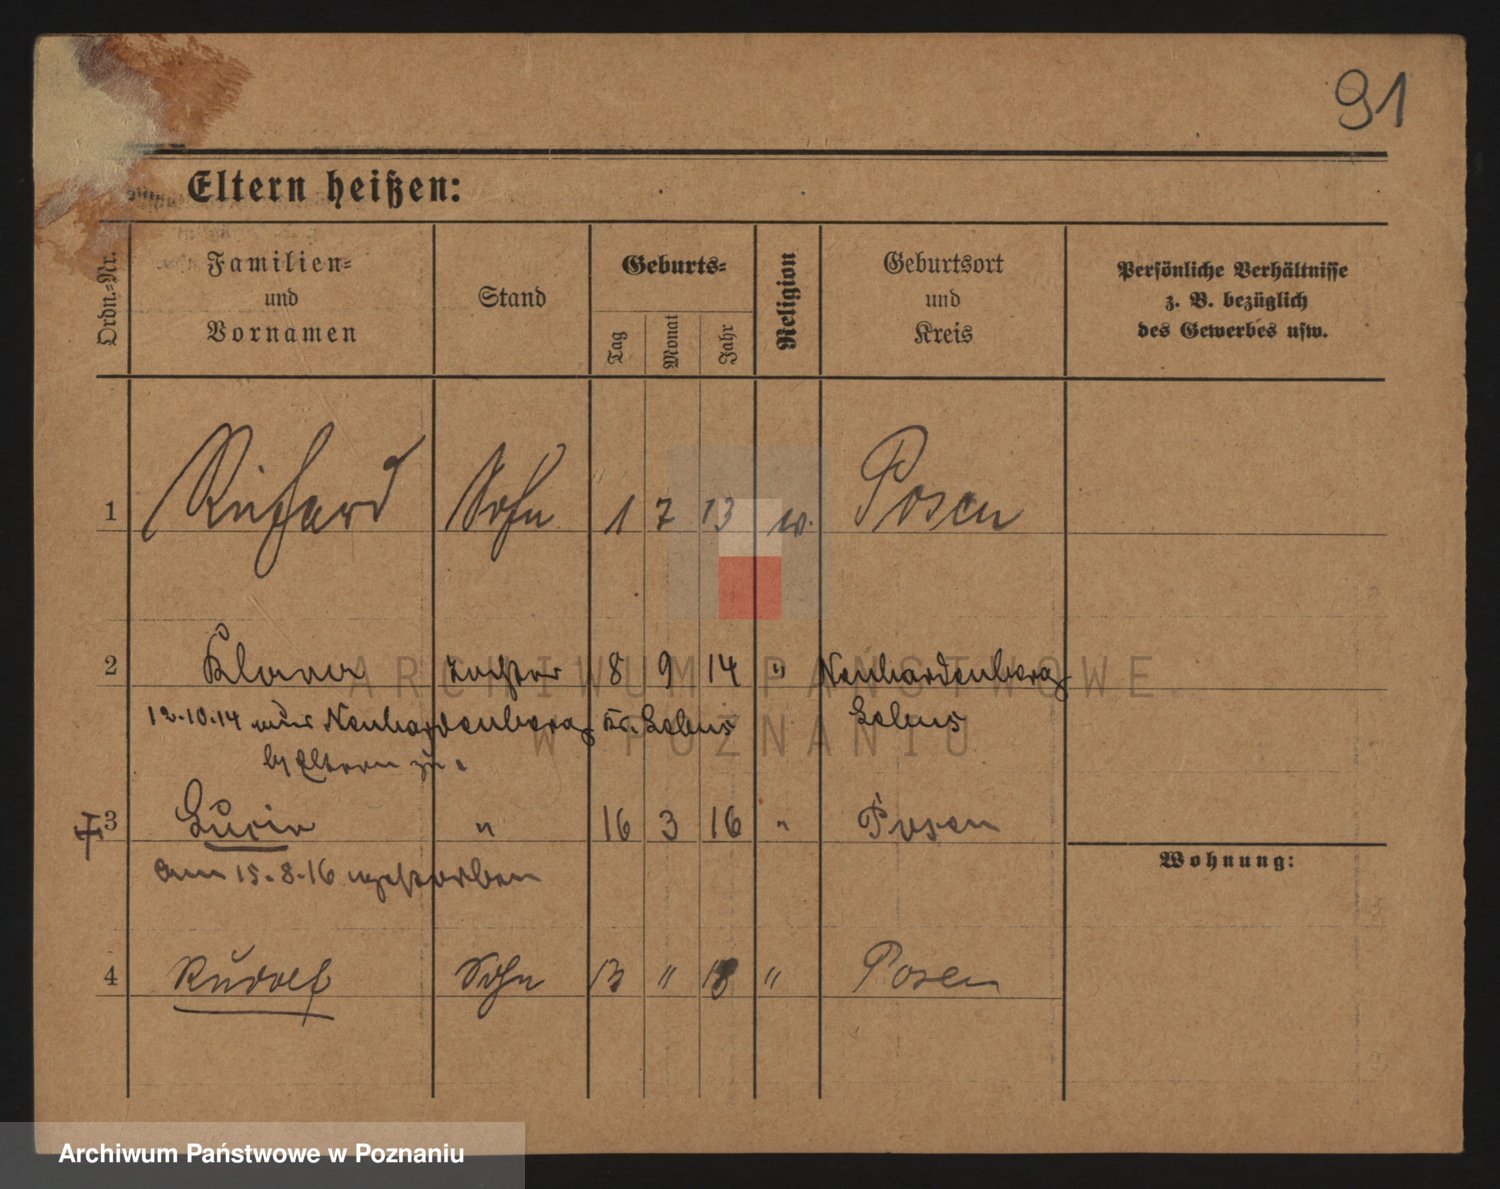 91
Eltern heißen:
Ordn.-Nr.
Familien-
und
Vornamen
Stand
Geburts-
Tag
Monat
Jahr
Religion
Geburtsort
und
Kreis
Persönliche Verhältnisse
z. B. bezüglich
des Gewerbes usw.
1 Richard Sohn 1 7 13 Posen
2 Klara Tochter 8 9 14 " Neuhardenberg
12.10.14 Neuhardenberg Kr. Lebus Lebus
Eltern
3 Lucie " 16 3 16 " Posen
Wohnung:
am 15.8.16 gestorben
4 Rudolf Sohn 13 " 18 " Posen
ARCHIWUM PAŃSTWOWE
W POZNANIU
Archiwum Państwowe w Poznaniu